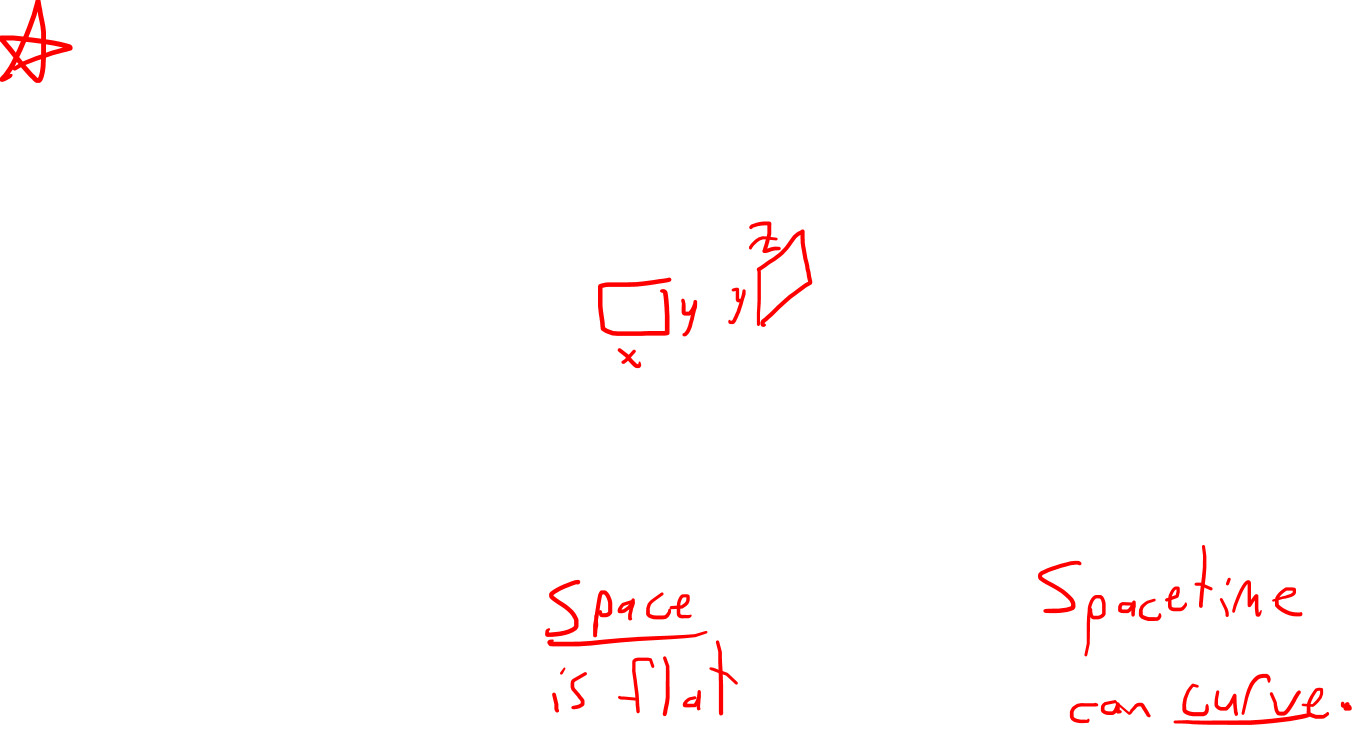 z
y
y
x
Space
is flat
Spacetime
can curve.